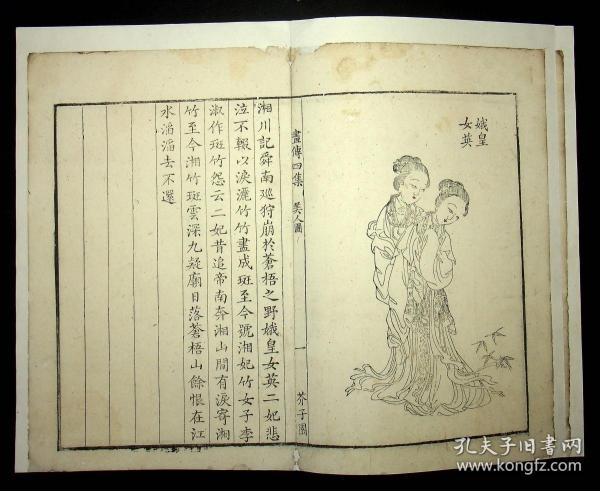 娥皇
女英
畫傳四集
美人圖
一
芥子園
湘川記舜南巡狩崩於蒼梧之野娥皇女英二妃悲
泣不輟以淚灑竹竹盡成斑至今號湘妃竹女子李
淑作斑竹怨云二妃昔追帝南奔湘山間有淚寄湘
竹至今湘竹斑雲深九疑廟日落蒼梧山餘恨在江
水滔滔去不還
孔夫子旧书网
www.kongfz.com